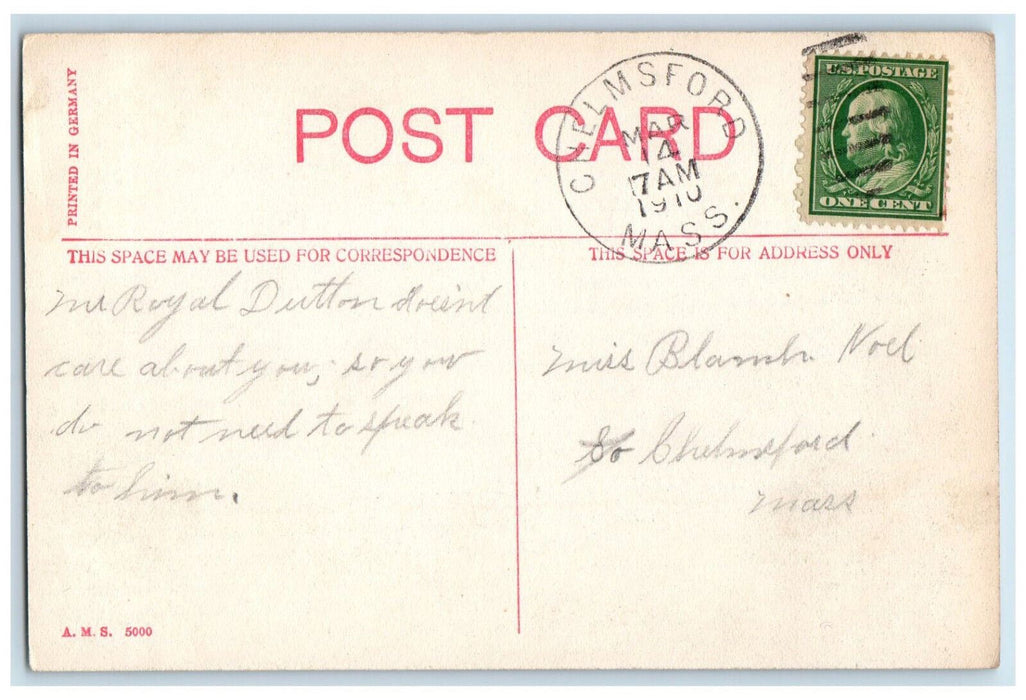 PRINTED IN GERMANY
POST CARD
CHELMSFORD
MAR
14
7 AM
1910
MASS.
U.S. POSTAGE
ONE CENT
THIS SPACE MAY BE USED FOR CORRESPONDENCE
Mr Royal Dutton doesint
care about you, so you
do not need to speak
to him.
THIS SPACE IS FOR ADDRESS ONLY
Miss Blanch Noel
So Chelmsford
Mass
A. M. S. 5000